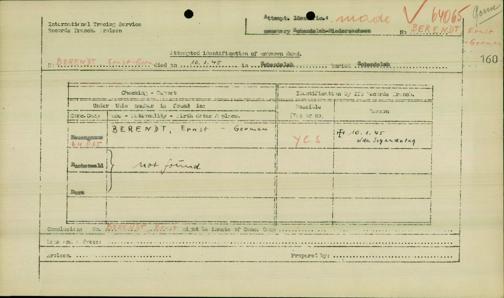 International Tracing Service
Records Branch. Arolsen
Attempt. Identific.: made ✓ 64065
cemetery Schandelah-Niedersachsen No: BERENDT
Ernst
German
160
Attempted identification of unknown dead.
BERENDT Ernst died in 10.1.45 in Schandelah buried Schandelah
Checking - Report
Identification by ITS Records Branch.
Under this number is found in:
Possible
Conc. Camp Name - Nationality - Birth date & place.
(Yes or no)
Reason
Neuengamme BERENDT, Ernst - German
64065
YES
10.1.45
Buchenwald not found
Conclusion: No. BERENDT, Ernst might be inmate of Conc. Camp
Arolsen: Prepared by: